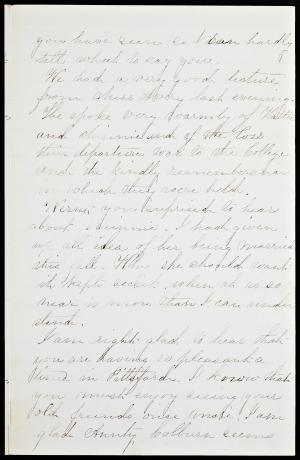 you have seen, so I can hardly
tell what to say yours.
We had a very good lecture
from Miss last evening.
She spoke very warmly of
and Minnie and of the loss
their departure was to the College
and the kindly remembrance
in which they were held.
Wern't you surprised to hear
about Minnie. I had given
up all idea of her being married
this fall. Why she should want
it kept secret when it is so
near is more than I can under
stand.
I am right glad to hear that
you are having so pleasant a
time in Pittsford. I know that
you must enjoy seeing your
old friends once more. I am
glad Aunty Colburn seems